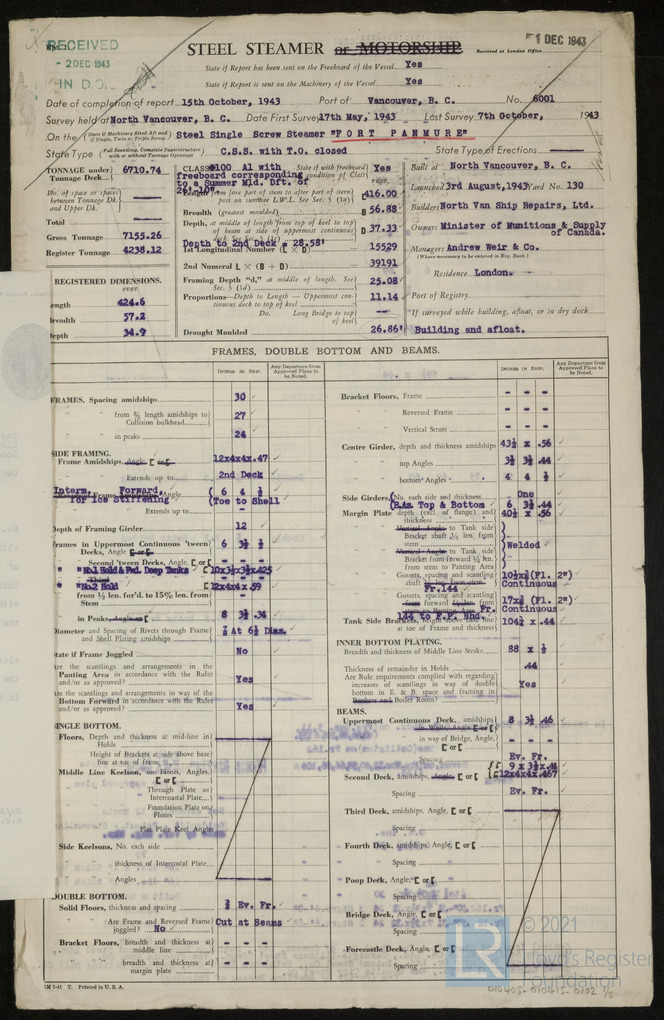 RECEIVED
- 2 DEC 1943
IN D.O.
1 DEC 1943
STEEL STEAMER or MOTORSHIP
Received at London Office
State if Report has been sent on the Freeboard of the Vessel Yes
State if Report is sent on the Machinery of the Vessel Yes
Date of completion of report 15th October, 1943 Port of Vancouver, B. C. No. 6001
Survey held at North Vancouver, B. C. Date First Survey 17th May, 1943 Last Survey 7th October, 1943
On the (State if Machinery fitted Aft and if Single, Twin or Triple Screw) Steel Single Screw Steamer "FORT PANMURE"
State Type (Full Scantling, Complete Superstructure with or without Tonnage Openings) C.S.S. with T.O. closed State Type of Erections
TONNAGE under Tonnage Deck 6710.74
Do. of space or spaces between Tonnage Dk. and Upper Dk.
Total
Gross Tonnage 7155.26
Register Tonnage 4238.12
REGISTERED DIMENSIONS.
FEET.
ength 424.6
readth 57.2
epth 34.9
CLASS 100 A1 with freeboard corresponding to a Summer Mld. Dft. of
State if with freeboard condition of Class Yes
L 416.00
Breadth (greatest moulded) B 56.88
Depth, at middle of length from top of keel to top of beam at side of uppermost continuous D 37.33
Depth to 2nd Deck = 28.58'
1st Longitudinal Number (L × D) 15529
2nd Numeral L × (B + D) 39191
Framing Depth "d," at middle of length. See Sec. 3 (1d) 25.08
Proportions—Depth to Length—Uppermost continuous deck to top of keel 11.14
Do. Long Bridge to top of keel
Draught Moulded 26.86'
Built at North Vancouver, B. C.
Launched 3rd August, 1943 Yard No. 130
Builders North Van Ship Repairs, Ltd.
Owners Minister of Munitions & Supply of Canada.
Managers Andrew Weir & Co.
(Where necessary to be entered in Reg. Book.)
Residence London.
Port of Registry
If surveyed while building, afloat, or in dry dock
Building and afloat.
FRAMES, DOUBLE BOTTOM AND BEAMS.
INCHES IN SHIP.
Any Departure from Approved Plans to be Noted.
FRAMES, Spacing amidships 30
" " from ⅗ length amidships to Collision bulkhead 27
" " in peaks 24
SIDE FRAMING.
Frame Amidships, Angle [ or [ 12x4x4x.47
" " Extends up to 2nd Deck
Interm. Forward, Frame Angle for Ice Stiffening 6 4 ½ (Toe to Shell
" " Extends up to
Depth of Framing Girder 12
Frames in Uppermost Continuous 'tween Decks, Angle [ or [ 6 3½ ½
" Second 'tween Decks, Angle, [ or [
" " No.1 Hold & Fwd. Deep Tanks [ 10x3½x3½x.425
" Third " "
" " No.2 Hold [ 12x4x4x.59
" from ½ len. for'd. to 15% len. from Stem
" in Peaks, Angle or [ 8 3½ .34
Diameter and Spacing of Rivets through Frame and Shell Plating amidships ⅞ At 6½ Dias.
State if Frame Joggled No
Are the scantlings and arrangements in the Panting Area in accordance with the Rules and/or as approved? Yes
Are the scantlings and arrangements in way of the Bottom Forward in accordance with the Rules and/or as approved? Yes
SINGLE BOTTOM.
Floors, Depth and thickness at mid-line in Holds
" Height of Brackets at side above base line at toe of frame
Middle Line Keelson, on Floors, Angles, [ or [
" " Through Plate or Intercostal Plate
" " Foundation Plate on Floors
" " Flat Plate Keel Angles
Side Keelsons, No. each side
" " thickness of Intercostal Plate
" " Angles
DOUBLE BOTTOM.
Solid Floors, thickness and spacing Ev. Fr.
" " Are Frame and Reversed Frame joggled? No Cut at Seams
Bracket Floors, breadth and thickness at middle line
" " breadth and thickness at margin plate
Bracket Floors, Frame
" " Reversed Frame
" " Vertical Struts
Centre Girder, depth and thickness amidships 43½ x .56
" " top Angles 3½ 3½ .44
" " bottom Angles 4 4 ½
Side Girders, No. each side and thickness One
(B.As. Top & Bottom 6 3½ .44
Margin Plate depth (excl. of flange) and thickness 40½ x .56
" " Vertical Angle to Tank side Bracket abaft ¼ len. from stem
" " Vertical Angle to Tank side Bracket from forward ¼ len. from stem to Panting Area
Welded
" " Gussets, spacing and scantling abaft ¼ len. from stem Fr.144 10½x½(Fl. 2") Continuous
" " Gussets, spacing and scantling from forward ¼ len. from stem to Panting Area Fr. 144 to F.P. Bhd. 17x½(Fl. 2") Continuous
Tank Side Brackets, height above base line at toe of Frame and thickness 104½ x .44
INNER BOTTOM PLATING.
Breadth and thickness of Middle Line Strake 88 x ½
Thickness of remainder in Holds .44
Are Rule requirements complied with regarding increases of scantlings in way of double bottom in E. & B. space and framing in Bunkers and Boiler Room? Yes
BEAMS.
Uppermost Continuous Deck, amidships 8 3½ .46
" " in way of Bridge, Angle, [ or [
" " Spacing Ev. Fr.
Second Deck, amidships, Angle [ or [ 9 x 3½x.44 12x4x4x.467
" " Spacing Ev. Fr.
Third Deck, amidships, Angle, [ or [
" " Spacing
Fourth Deck, amidships, Angle, [ or [
" " Spacing
Poop Deck, Angle, [ or [
" " Spacing
Bridge Deck, Angle, [ or [
" " Spacing
Forecastle Deck, Angle, [ or [
" " Spacing
1M 7-41 T. Printed in U. S. A.
© 2021
Lloyd's Register
Foundation
010405-010415-0102 1/2